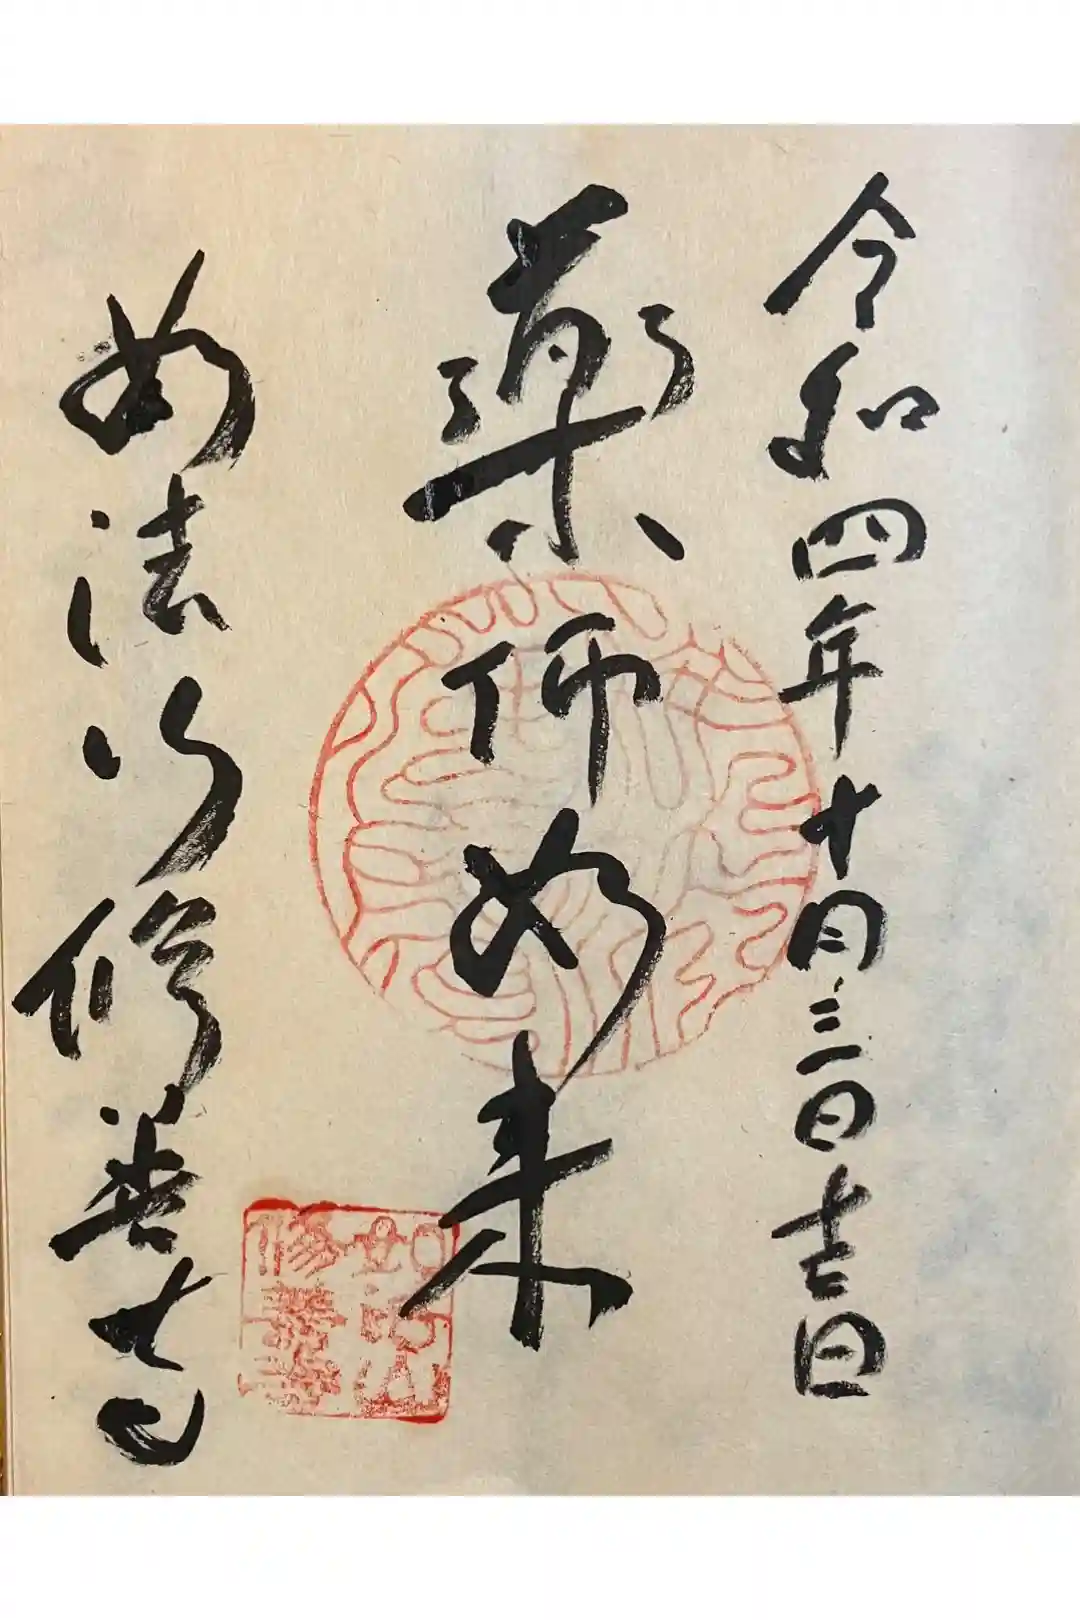 令和四年十月三日吉日
薬師如来
如法山修善寺